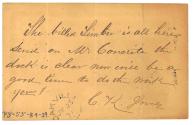 The billed Lumber is all here
Send on Mr. Concrete the
dock is clear now will be a
good time to do the work
yrs!
C. H. Jones